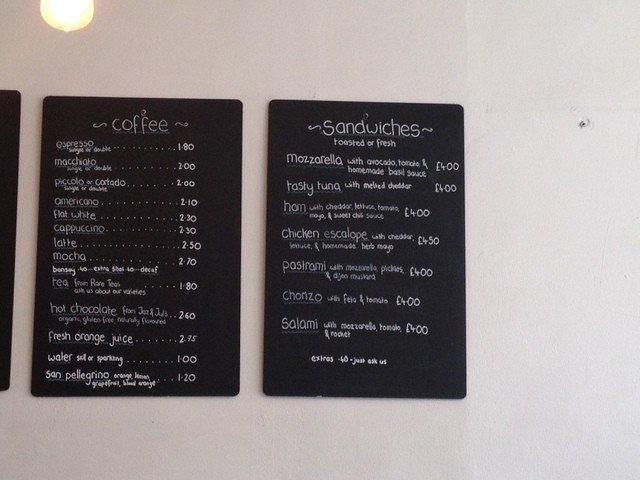 ~ coffee ~
espresso .......... 1.80
single or double
macchiato .......... 2.00
single or double
piccolo or cortado .......... 2.00
single or double
americano .......... 2.10
flat white .......... 2.30
cappuccino .......... 2.30
latte .......... 2.50
mocha .......... 2.70
extra shot .40 decaf
tea from Rare Teas .......... 1.80
ask us about our varieties
hot chocolate from .. 2.60
organic, gluten-free, naturally flavoured
fresh orange juice .... 2.75
water still or sparkling .......... 1.00
san pellegrino orange, lemon, .... 1.20
grapefruit, blood orange
~Sandwiches~
toasted or fresh
mozzarella with avocado, tomato, & £4.00
homemade basil sauce
tasty tuna with melted cheddar £4.00
ham with cheddar, lettuce, tomato, £4.00
mayo, & sweet chili sauce
chicken escalope with cheddar, £4.50
lettuce, & homemade herb mayo
pastrami with mozzarella, pickles, £4.00
& dijon mustard
Chorizo with feta & tomato £4.00
Salami with mozzarella, tomato, £4.00
& rocket
extras .40 - just ask us